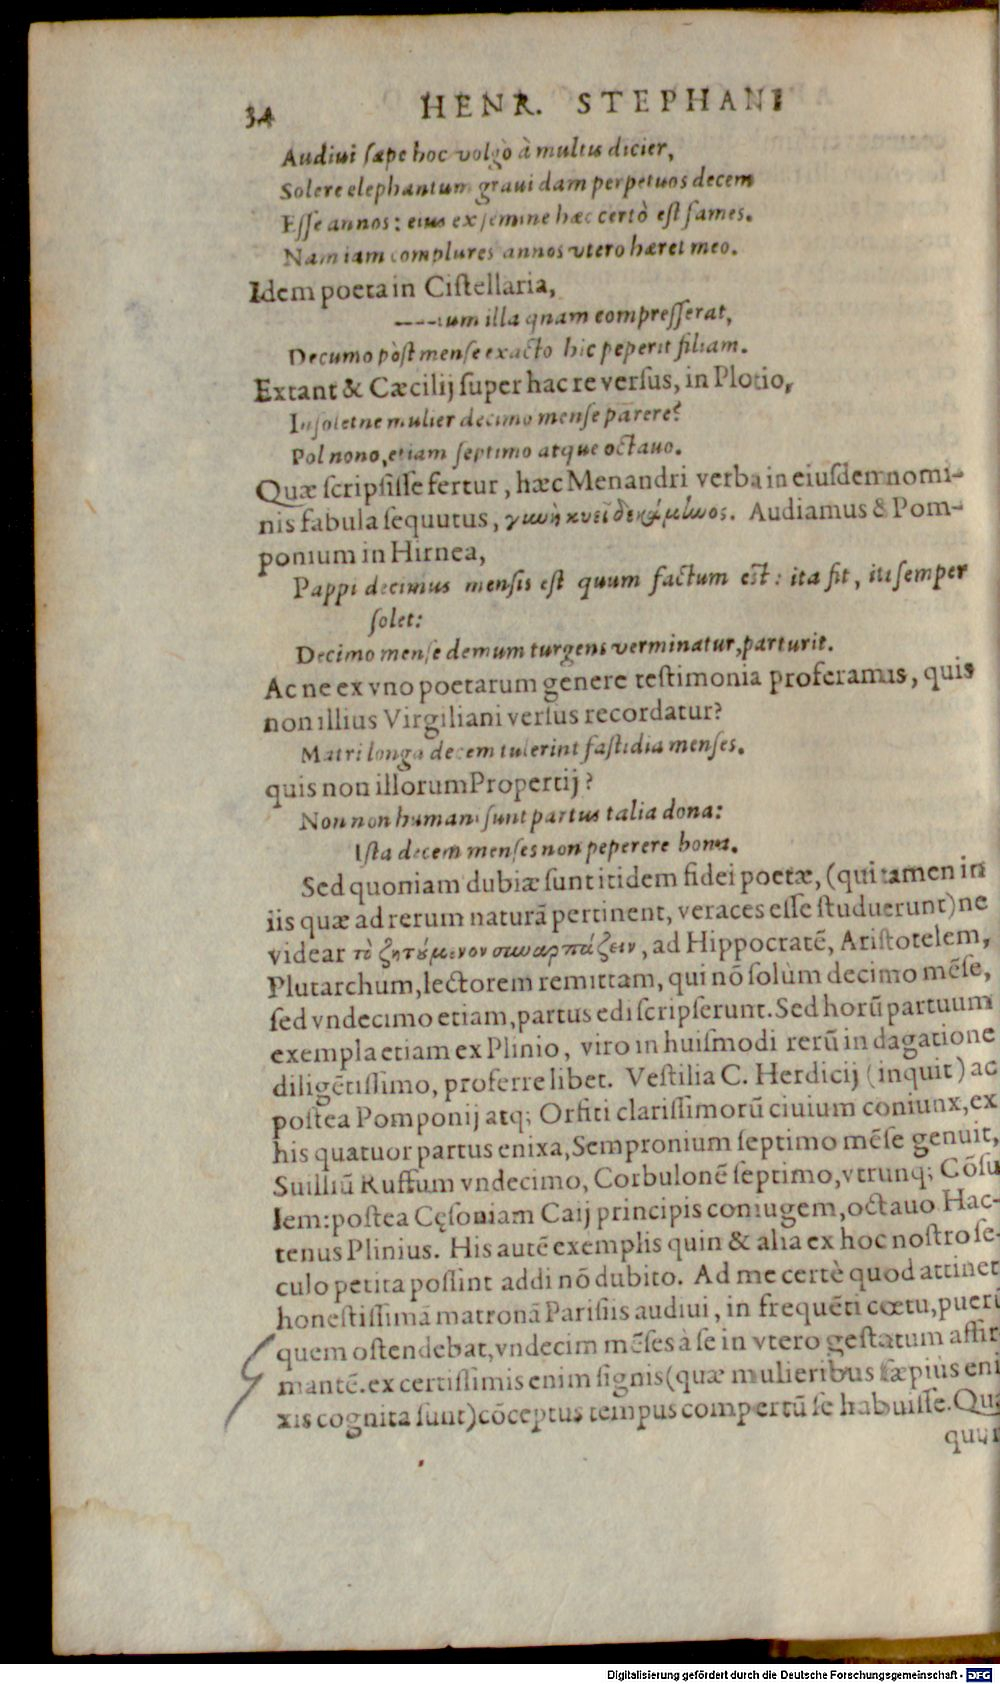 34 HENR. STEPHANI
Audiui sæpe hoc volgò à multis dicier,
Solere elephantum grauidam perpetuos decem
Esse annos: eius ex semine hæc certò est fames.
Nam iam complures annos vtero hæret meo.
Idem poeta in Cistellaria,
----tum illa quam compresserat,
Decumo pòst mense exacto hic peperit filiam.
Extant & Cæcilij super hac re versus, in Plotio,
Insoletne mulier decimo mense parere?
Pol nono, etiam septimo atque octauo.
Quæ scripsisse fertur, hæc Menandri verba in eiusdem nomi-
nis fabula sequutus, γυνὴ κυεῖ δεκάμηνος. Audiamus & Pom-
ponium in Hirnea,
Pappi decimus mensis est quum factum est: ita fit, ita semper
solet:
Decimo mense demum turgens verminatur, parturit.
Ac ne ex vno poetarum genere testimonia proferamus, quis
non illius Virgiliani versus recordatur?
Matri longa decem tulerint fastidia menses.
quis non illorum Propertij?
Non non humani sunt partus talia dona:
Ista decem menses non peperere bona.
Sed quoniam dubiæ sunt itidem fidei poetæ, (qui tamen in
iis quæ ad rerum naturā pertinent, veraces esse studuerunt) ne
videar τὸ ζητούμενον συναρπάζειν, ad Hippocratē, Aristotelem,
Plutarchum, lectorem remittam, qui nō solùm decimo mēse,
sed vndecimo etiam, partus edi scripserunt. Sed horū partuum
exempla etiam ex Plinio, viro in huismodi rerū indagatione
diligētissimo, proferre libet. Vestilia C. Herdicij (inquit) ac
postea Pomponij atq; Orfiti clarissimorū ciuium coniunx, ex
his quatuor partus enixa, Sempronium septimo mēse genuit,
Suilliū Ruffum vndecimo, Corbulonē septimo, vtrunq; Cōsu
lem: postea Cęsoniam Caij principis coniugem, octauo Hac-
tenus Plinius. His autē exemplis quin & alia ex hoc nostro se-
culo petita possint addi nō dubito. Ad me certè quod attinet
honestissimā matronā Parisiis audiui, in frequēti cœtu, puerū
quem ostendebat, vndecim mēses à se in vtero gestatum affir
mantē. ex certissimis enim signis (quæ mulieribus sæpiùs eni
xis cognita sunt) cōceptus tempus compertū se habuisse.
Digitalisierung gefördert durch die Deutsche Forschungsgemeinschaft - DFG